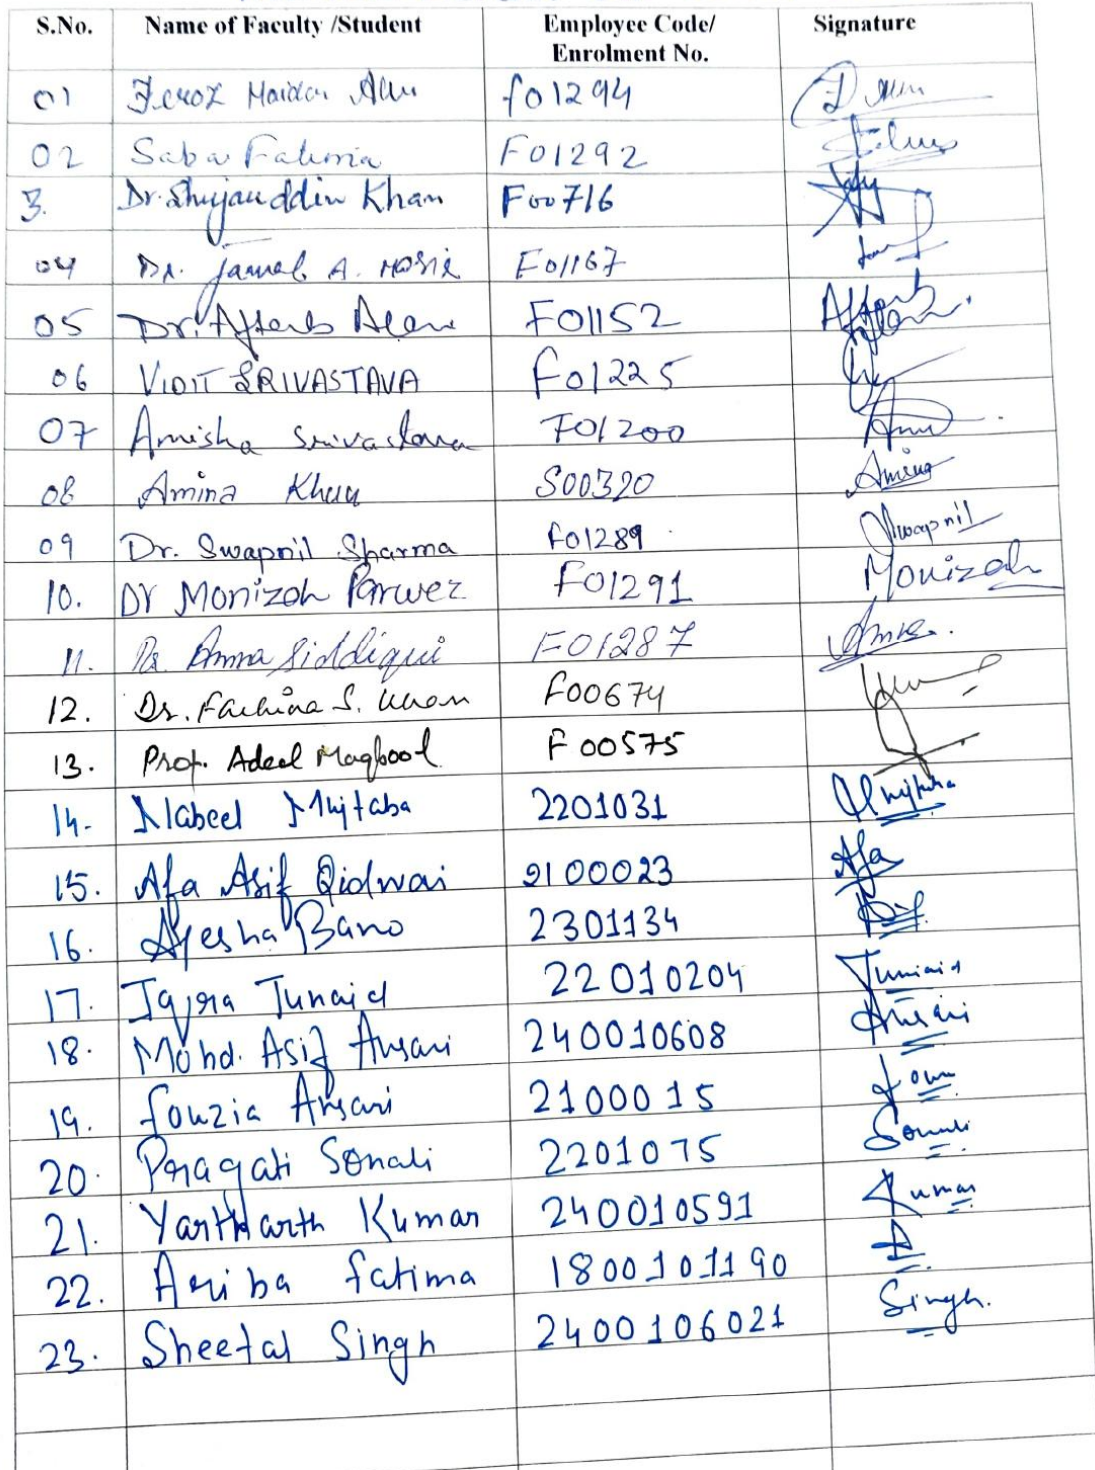 S.No. Name of Faculty /Student Employee Code/ Enrolment No. Signature
01 Feroz Haider Alvi F01294
02 Saba Fatima F01292
3. Dr. Shujauddin Khan F00716
04 Dr. Jamal A. F01167
05 Dr. Aftab Alam F01152 Aftab Alam
06 VIDIT SRIVASTAVA F01225
07 Amisha Srivastava F01200
08 Amina Khan S00320 Amina
09 Dr. Swapnil Sharma F01289 Swapnil
10. Dr Monizah Parwez F01291 Monizah
11. Dr. Amna Siddiqui F01287 Amna.
12. Dr. S. Khan F00674
13. Prof. Adeel Maqbool F00575
14. Nabeel Mujtaba 2201031 Mujtaba
15. Afa Asif Qidwai 2100023 Afa
16. Ayesha Bano 2301134
17. Iqra Junaid 22010204 Junaid
18. Mohd. Asif Ansari 240010608 Ansari
19. Fouzia Ansari 2100015
20. Pragati Sonali 2201075 Sonali
21. Yarthharth Kumar 240010591 Kumar
22. Ariba Fatima 1800101190 A
23. Sheetal Singh 2400106021 Singh.